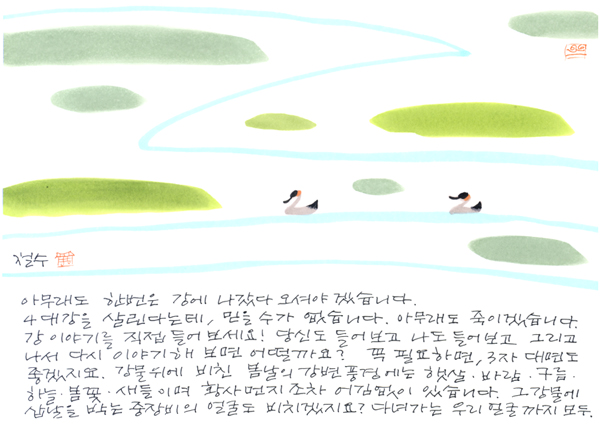 철수
아무래도 한번은 강에 나갔다 오셔야 겠습니다.
4대강을 살린다는데, 믿을 수가 없습니다. 아무래도 죽이겠습니다.
강 이야기를 직접 들어보세요! 당신도 들어보고 나도 들어보고 그리고
나서 다시 이야기해 보면 어떨까요? 꼭 필요하면, 3자 대면도
좋겠지요. 강물위에 비친 봄날의 강변풍경에는 햇살·바람·구름·
하늘·봄꽃·새들이며 황사먼지조차 어김없이 있습니다. 그강물에
삽날을 박는 중장비의 얼굴도 비치겠지요? 다녀가는 우리 얼굴까지 모두.